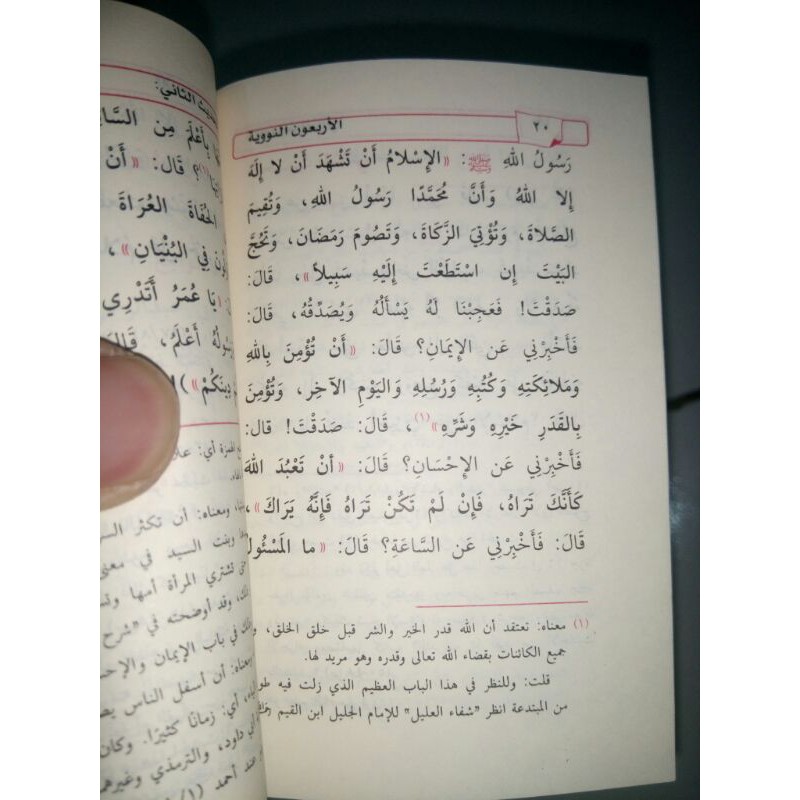 ٢٠
الأربعون النووية
رَسُولُ اللهِ ﷺ: «الإِسْلامُ أَنْ تَشْهَدَ أَنْ لا إِلَهَ
إِلا اللهُ وَأَنَّ مُحَمَّدًا رَسُولُ اللهِ، وَتُقِيمَ
الصَّلاةَ، وَتُؤْتِيَ الزَّكَاةَ، وَتَصُومَ رَمَضَانَ، وَتَحُجَّ
البَيْتَ إِن اسْتَطَعْتَ إِلَيْهِ سَبِيلاً»، قَالَ:
صَدَقْتَ! فَعَجِبْنَا لَهُ يَسْأَلُهُ وَيُصَدِّقُهُ، قَالَ:
فَأَخْبِرْنِي عَنِ الإِيمَانِ؟ قَالَ: «أَنْ تُؤْمِنَ بِاللهِ
وَمَلائِكَتِهِ وَكُتُبِهِ وَرُسُلِهِ وَاليَوْمِ الآخِرِ، وَتُؤْمِنَ
بِالقَدَرِ خَيْرِهِ وَشَرِّهِ»(١)، قَالَ: صَدَقْتَ! قال:
فَأَخْبِرْنِي عَنِ الإِحْسَانِ؟ قَالَ: «أنْ تَعْبُدَ اللهَ
كَأَنَّكَ تَرَاهُ، فَإِنْ لَمْ تَكُنْ تَرَاهُ فَإِنَّهُ يَرَاكَ»،
قَالَ: فَأَخْبِرْنِي عَنِ السَّاعَةِ؟ قَالَ: «ما المَسْئُولُ
(١) معناه: تعتقد أن الله قدر الخير والشر قبل خلق الخلق، و
جميع الكائنات بقضاء الله تعالى وقدره وهو مريد لها.
قلت: وللنظر في هذا الباب العظيم الذي زلت فيه
من المبتدعة انظر "شفاء العليل" للإمام الجليل ابن القيم
الثاني:
بِأَعْلَمَ مِنَ
؟ قَالَ: «أَنْ
الحُفَاةَ العُرَاةَ
فِي البُنْيَانِ»،
«يَا عُمَرُ أَتَدْرِي
أَعْلَمُ،
دِينَكُمْ»)
الهمزة أي:
ومعناه: أن تكثر
وبنت السيد في معنى
تشتري المرأة أمها
وقد أوضحته في "شرح
في باب الإيمان
أن أسفل الناس
أي: زمانًا كثيرًا. وكان
داود، والترمذي وغيرهم
عند أحمد (١/